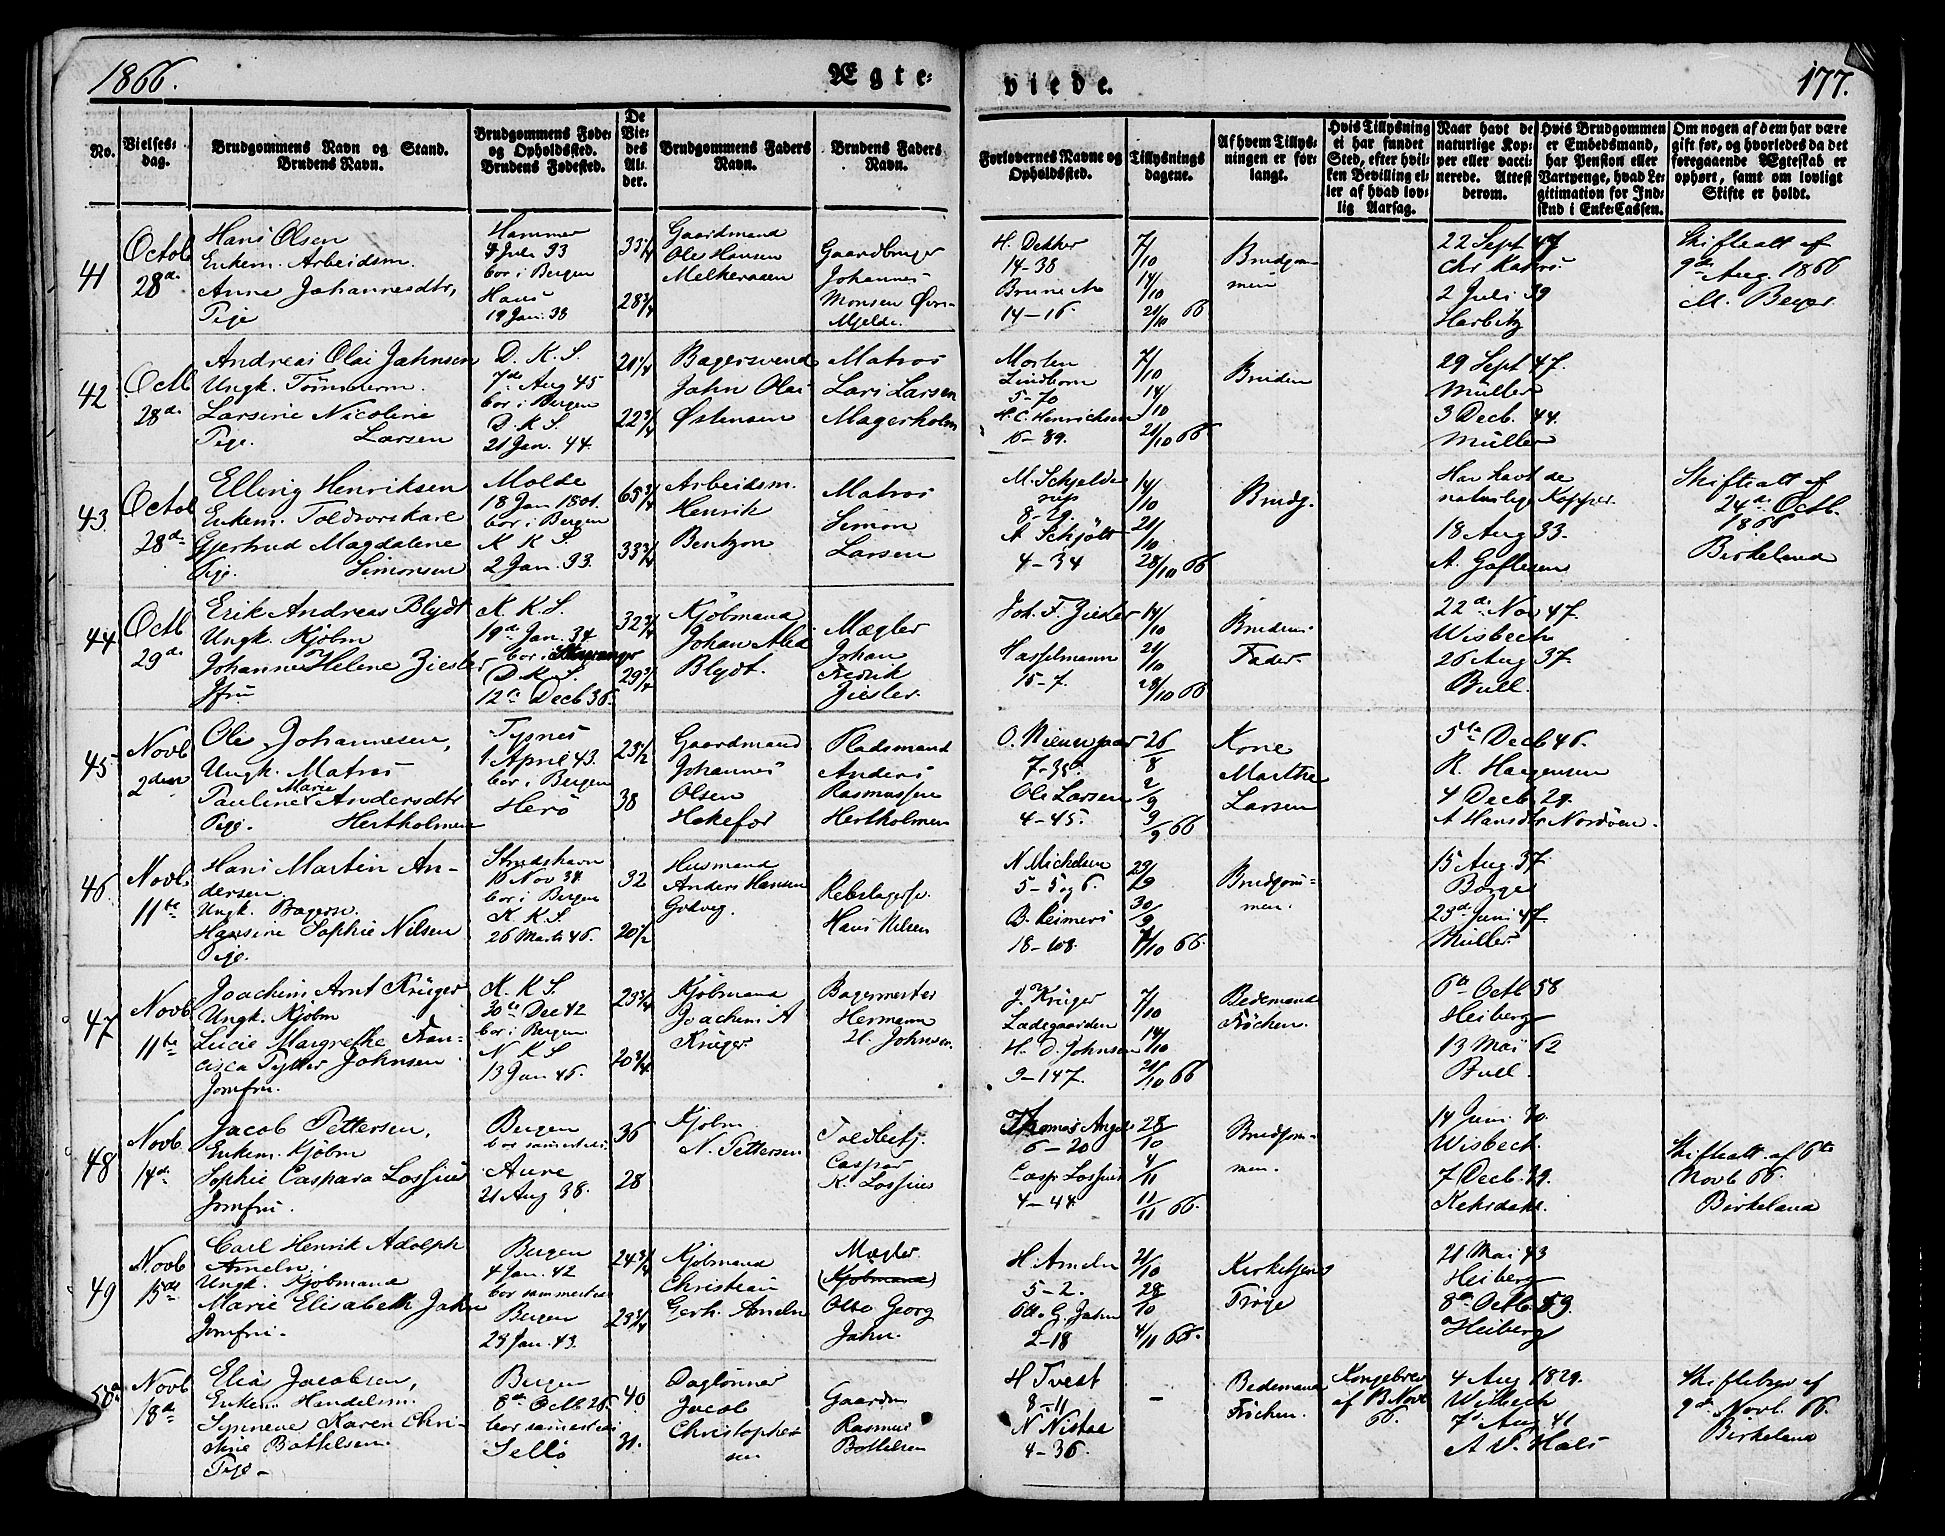 1866.
Ægte-
viede.
177.
No.
Vielses-
dag.
Brudgommens Navn og Stand.
Brudens Navn.
Brudgommens Føde-
og Opholdssted.
Brudens Fødested.
De
Vie-
des
Al-
der.
Brudgommens Faders
Navn.
Brudens Faders
Navn.
Forlovernes Navne og
Opholdssted.
Tillysnings
dagene.
Af hvem Tillys-
ningen er for-
langt.
Hvis Tillysning
ei har fundet
Sted, efter hvil-
ken Bevilling el-
ler af hvad lov-
lig Aarsag.
Naar havt de
naturlige Kop-
per eller vacci-
nerede. Attest
derom.
Hvis Brudgommen
er Embedsmand,
har Pension eller
Vartpenge, hvad Le-
gitimation for Ind-
skud i Enke-Cassen.
Om nogen af dem har være
gift før, og hvorledes da det
foregaaende Ægteskab er
ophørt, samt om lovligt
Skifte er holdt.
41
Octob
28de
Hans Olsen
Enkem. Arbeidsm.
Anne Johannesdtr,
Pige
Hammer
4 Juli 33
bor i Bergen
Haus
19 Jan. 38
33 1/4
28 3/4
Gaardmand
Ole Hansen
Gaardbruger
Johannes
Monsen
Mjelde.
H. Dekker
14-38
14-16.
7/10
14/10
21/10 66
Brudgom-
men
22 Sept 47
2 Juli 39
Herbitz
Skifteatt af
9de Aug. 1866
M. Beyer
42
Octb
28de
Andreas Olai Jahnsen
Ungk. Tømmerm.
Larsine Nicoline
Pige. Larsen
D. K. S.
7de Aug 45
bor i Bergen
D. K. S.
21 Jan. 44.
21 1/4
22 3/4
Bagersvend
Jahn Olai
Østensen
Matros
Lars Larsen
Magerholm
Morten
Lindborn
5-70
H. C. Henrichsen
16-89.
7/10
14/10
21/10 66
Bruden
29 Sept 47.
Müller
3 Decb. 44.
Müller
43
Octob
28de
Elling Henriksen
Enkem. Toldrorskarl
Gjertrud Magdalene
Pige. Simonsen
Molde
18 Jan 1801.
bor i Bergen
K. K. S.
2 Jan. 33.
65 3/4
33 3/4
Arbeidsm.
Henrik
Bentzon
Matros
Simon
Larsen
M. Schjelde
rup
8-29.
A Schjölt
4-34
14/10
21/10
28/10 66
Brudg.
Har havt de
naturlige Kopper.
18 Aug 33.
Skifteatt af
24de Octb.
1866
Birkeland
44
Octb
29de
Erik Andreas Blydt
Ungk. Kjøbm
Johanne Helene Ziesler
Jfru
K. K. S.
19de Jan. 34
bor i Stavanger
D. K. S.
12te Decb 36.
32 3/4
29 3/4
Kjøbmand
Blydt.
Mægler
Johan
Fredrik
Ziesler.
Joh. F. Ziesler
Hasselmann
15-7.
14/10
21/10
28/10 66
Brudens
Fader.
22de Nov 47.
Wisbech
26 Aug 37.
Bull.
45
Novb
2den
Ole Johannesen,
Ungk. Matros
Pauline Marie Andersdtr
Pige. Hertholmen
Tysnes
1 April 43.
bor i Bergen
Herö
23 1/2
38
Gaardmand
Johannes
Olsen
Pladsmand
Anders
Rasmussen
Hertholmen
7-35.
Ole Larsen
4-45.
26/8
2/9
9/9 66
Kone
Marthe
Larsen
5te Decb 46.
4 Decb. 29.
A Hansdtr Nordøen.
46
Novb.
11te
Hans Martin An-
dersen
Ungk. Bagersv.
Hansine Sophie Nilsen
Pige.
Strudshavn
bor i Bergen
K. K. S.
26 Marts 46.
32
20 1/2
Husmand
Anders Hansen
Rebslagersv.
Hans Nilsen
N. Michelsen
5-5 og 6.
B. Reimers
18-108.
23/9
30/9
7/10 66.
Brudgom-
men.
15 Aug. 37.
23de Juni 47.
Müller
47
Novb.
11te
Joachim Arnt Krüger
Ungk. Kjøbm
Lucie Margrethe Fran-
cisca Johnsen
Jomfru.
K. K. S.
30te Dec 42
bor i Bergen
N. K. S.
13 Jan 46.
23 3/4
20 3/4
Kjøbmand
Joachim A
Krüger.
Bagermester
Hermann
H. Johnsen.
J. Krüger
Ladegaarden
H. D. Johnsen
9-147.
7/10
14/10
21/10 66
Bedemand
Fröchen.
6te Octb 58
Heiberg
13 Mai 62
Bull.
48
Novb
14de
Jacob Pettersen,
Enkem. Kjøbm
Sophie Caspara Lossius
Jomfru.
Bergen
bor sammesteds
Aure
21 Aug 38.
36
28
Kjøbm
N. Pettersen
Toldbetj.
Caspar
K. Lossius
Thomas Angell
6-20
Casp. Lossius
4-44
28/10
4/11
11/11 66.
Brudgom-
men.
14 Juni 30.
Wisbech
7 Decb. 39.
Skifteatt. af 6te
Novb 66.
Birkeland
49
Novb
15de
Carl Henrik Adolph
Ameln.
Ungk. Kjøbmand
Marie Elisabeth Jahn
Jomfru.
Bergen
4 Jan. 42
bor sammesteds
Bergen
23 Jan. 43.
24 3/4
23 3/4
Kjøbmand
Christian
Gerh. Ameln
Mægler
(Kjøbmand)
Otto Georg
Jahn.
H. Ameln
5-2.
Ott. G. Jahn
2-18
21/10
28/10
4/11 66.
21 Mai 43
Heiberg
8de Octb. 59.
Heiberg
50
Novb
18de
Elias Jacobsen,
Enkem. Handelsm.
Synneve Karen Chri-
stine Bottelsen.
Pige
Bergen
8de Octb 26.
bor sammesteds
Sellö
40
31.
Daglönner
Jacob
Christopher
sen
Gaardm
Rasmus
Bottelsen
H Tvest
8-11
4-36.
-
Bedemand
Fröchen.
Kongebrev
af 8 Novb
66.
4 Aug 1829.
Wisbech
7de Aug 41
Skiftebrev af
9de Novb. 66.
Birkeland